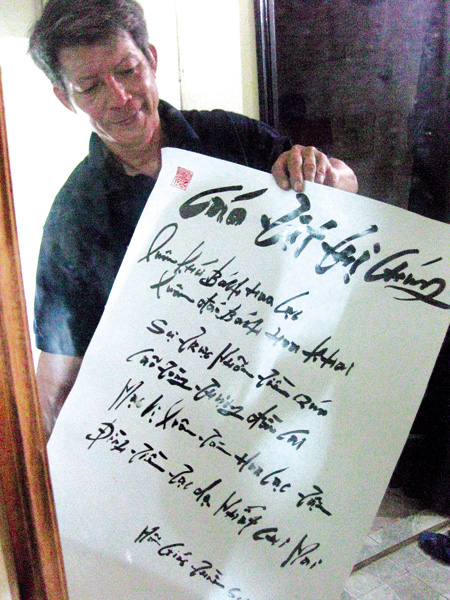 Cáo Tật Thị Chúng
Xuân khứ Bách hoa Lạc
Xuân đáo Bách hoa khai
Sự Trục Nhãn Tiền Quá
Lão Tòng Thượng đầu Lai
Mạc Vị Xuân Tàn Hoa Lạc Tận
Đình Tiền Tạc dạ Nhất Chi Mai
Mãn Giác Thiền